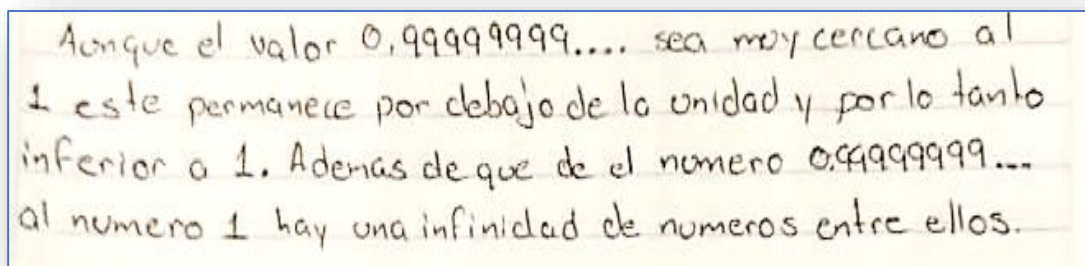 Aunque el valor 0.99999999.... sea muy cercano al
1 este permanece por debajo de la unidad y por lo tanto
inferior a 1. Además de que de el numero 0.99999999...
al numero 1 hay una infinidad de numeros entre ellos.